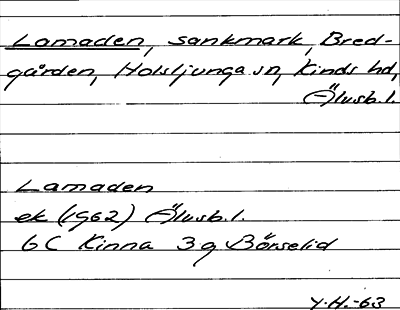 Lamaden, sankmark, Bred-
gården, Holsljunga sn, Kinds hd,
Älvsb. l.
Lamaden
ek (1962) Älvsb. l.
6C Kinna 3g Börselid
Y.H.-63